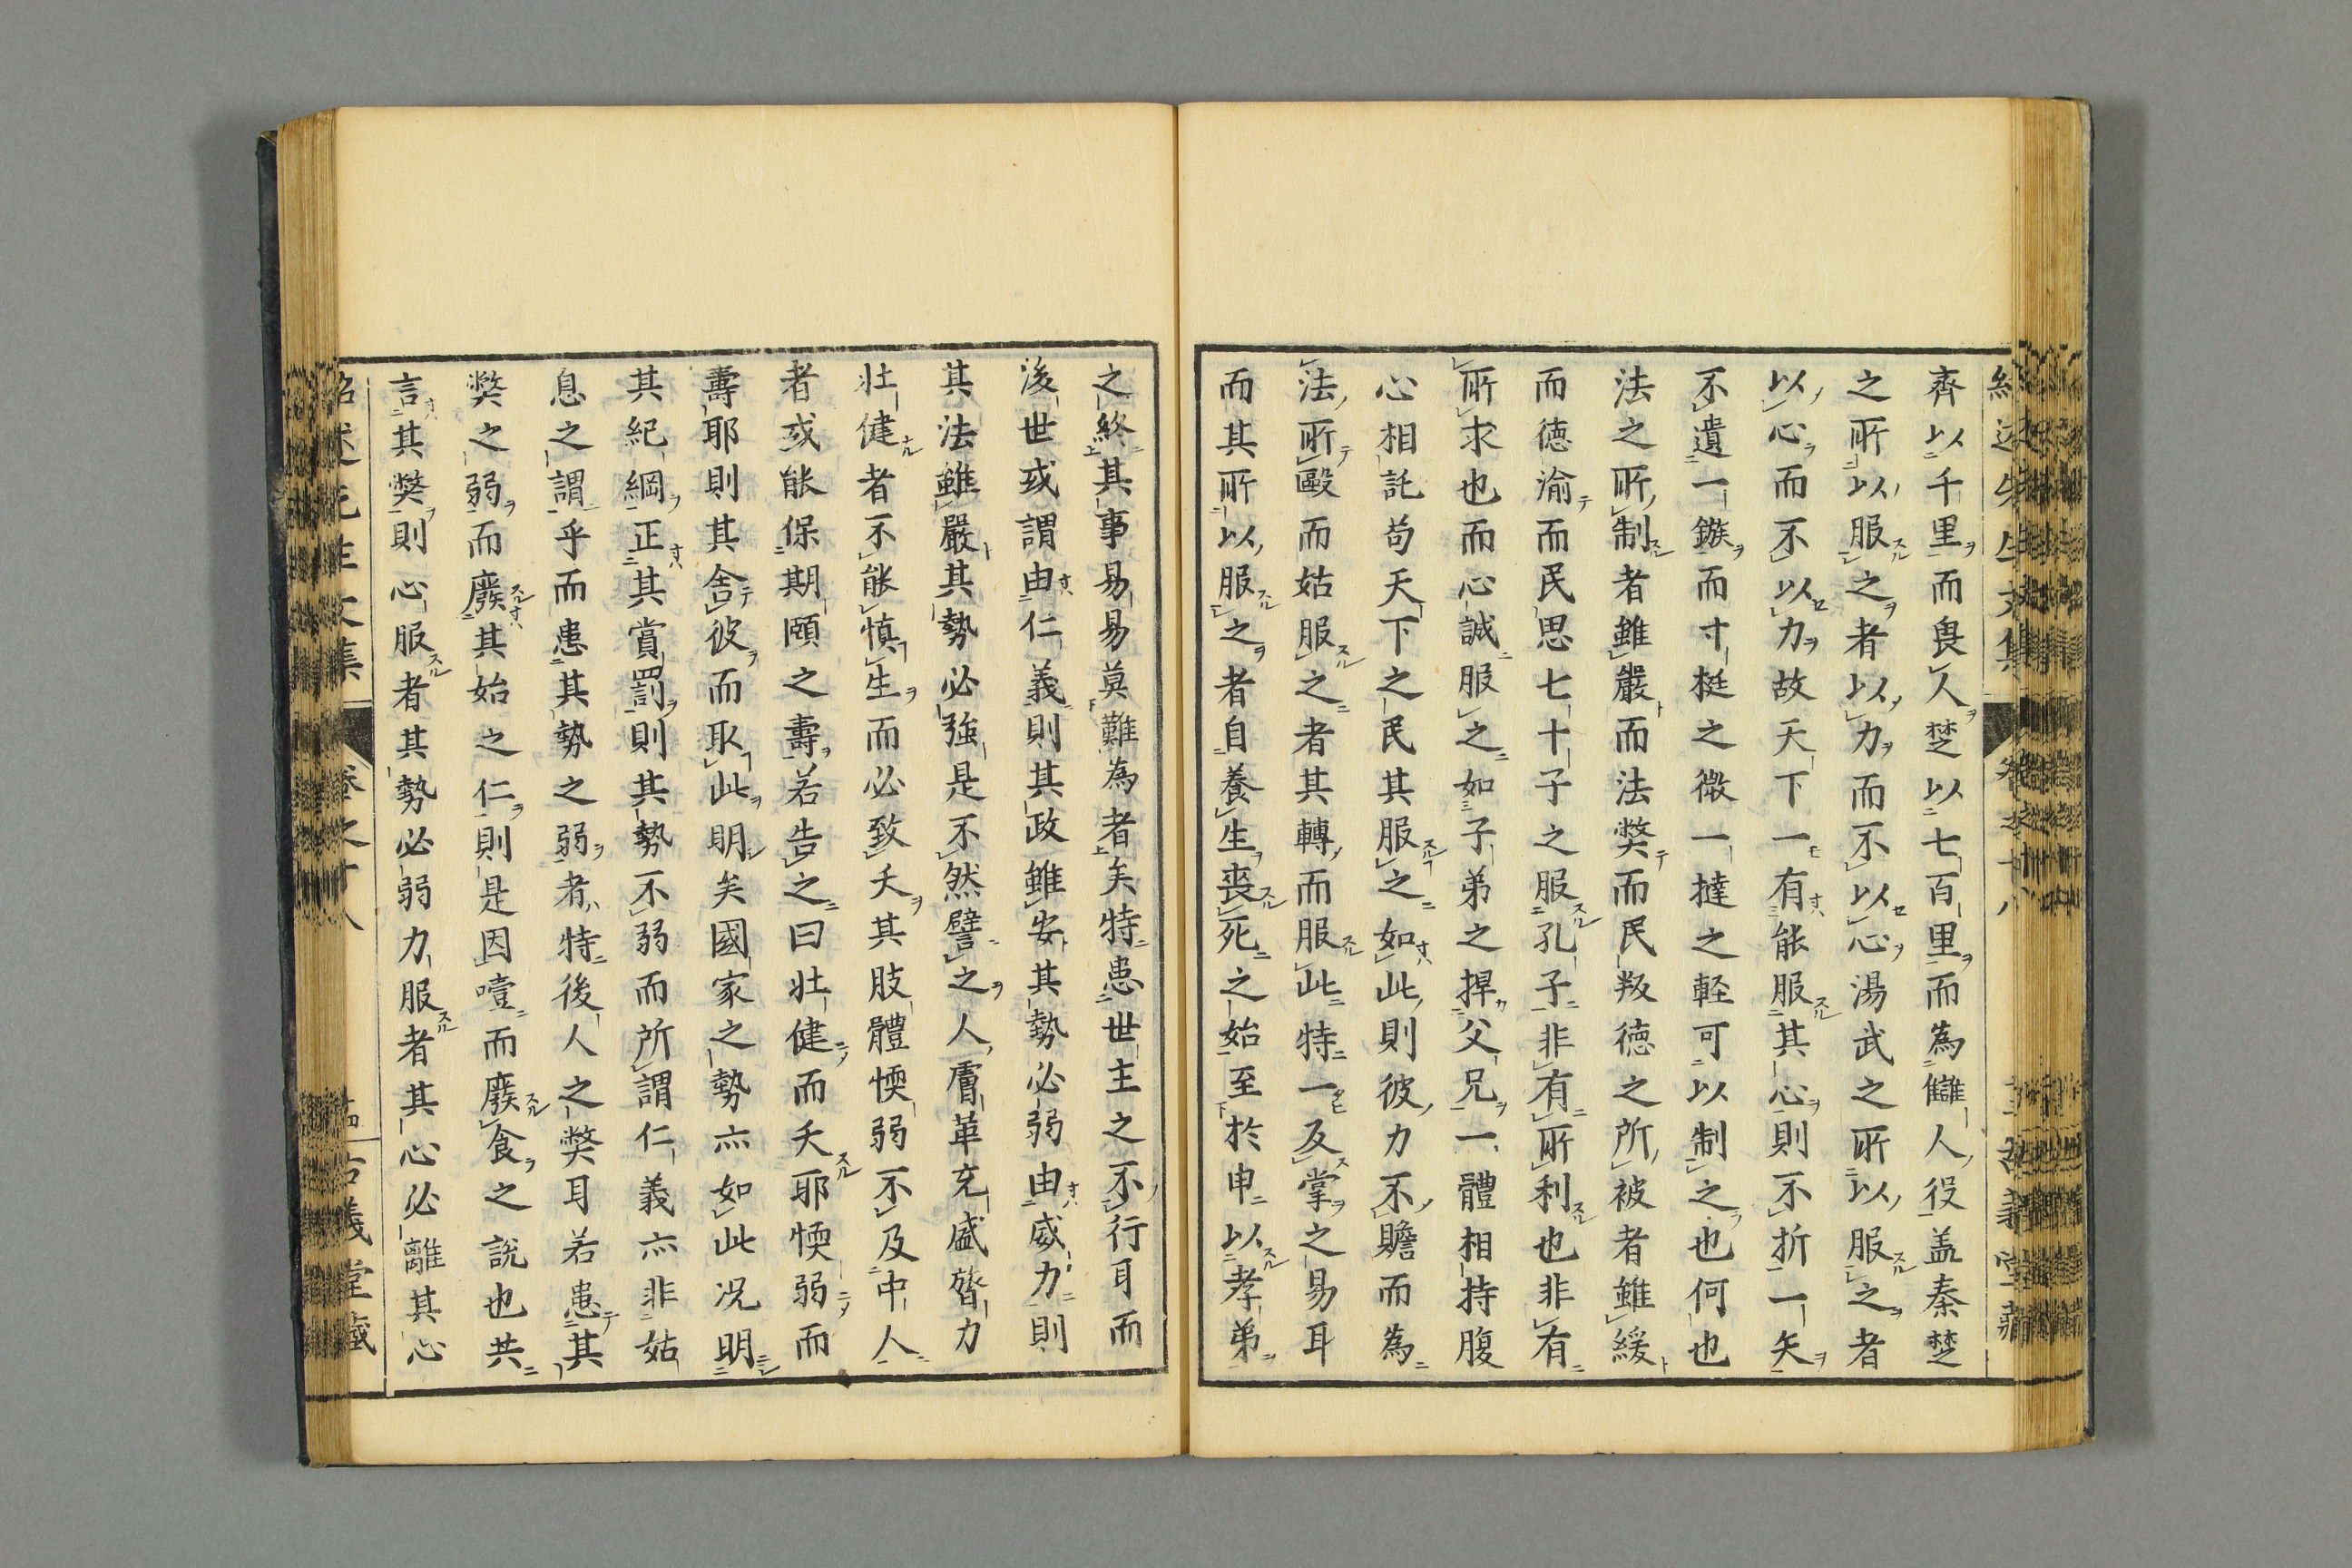 齊以千里而畏人楚以七百里而為讎人役盖秦楚
之所以服之者以力而不以心湯武之所以服之者
以心而不以力故天下一有能服其心則不折一矢
不遺一鏃而寸梃之微一撻之軽可以制之也何也
法之所制者雖嚴而法獘而民叛徳之所被者雖緩
而徳渝而民思七十子之服孔子非有所利也非有
所求也而心誠服之如子弟之捍父兄一體相持腹
心相託苟天下之民其服之如此則彼力不贍而為
法所毆而姑服之者其轉而服此特一反掌之易耳
而其所以服之者自養生喪死之始至於申以孝弟
之終其事易易莫難為者矣特患世主之不行耳而
後世或謂由仁義則其政雖安其勢必弱由威力則
其法雖嚴其勢必強是不然譬之人膚革充盛膂力
壮健者不能慎生而必致夭其肢體愞弱不及中人
者或能保期頤之壽若告之曰壮健而夭耶愞弱而
壽耶則其舎彼而取此明矣國家之勢亦如此况明
其紀綱正其賞罰則其勢不弱而所謂仁義亦非姑
息之謂乎而患其勢之弱者特後人之獘耳若患其
獘之弱而廢其始之仁則是因噎而廢食之說也共
言其獘則心服者其勢必弱力服者其心必離其心
紹述先生文集 卷之十八 古義堂藏